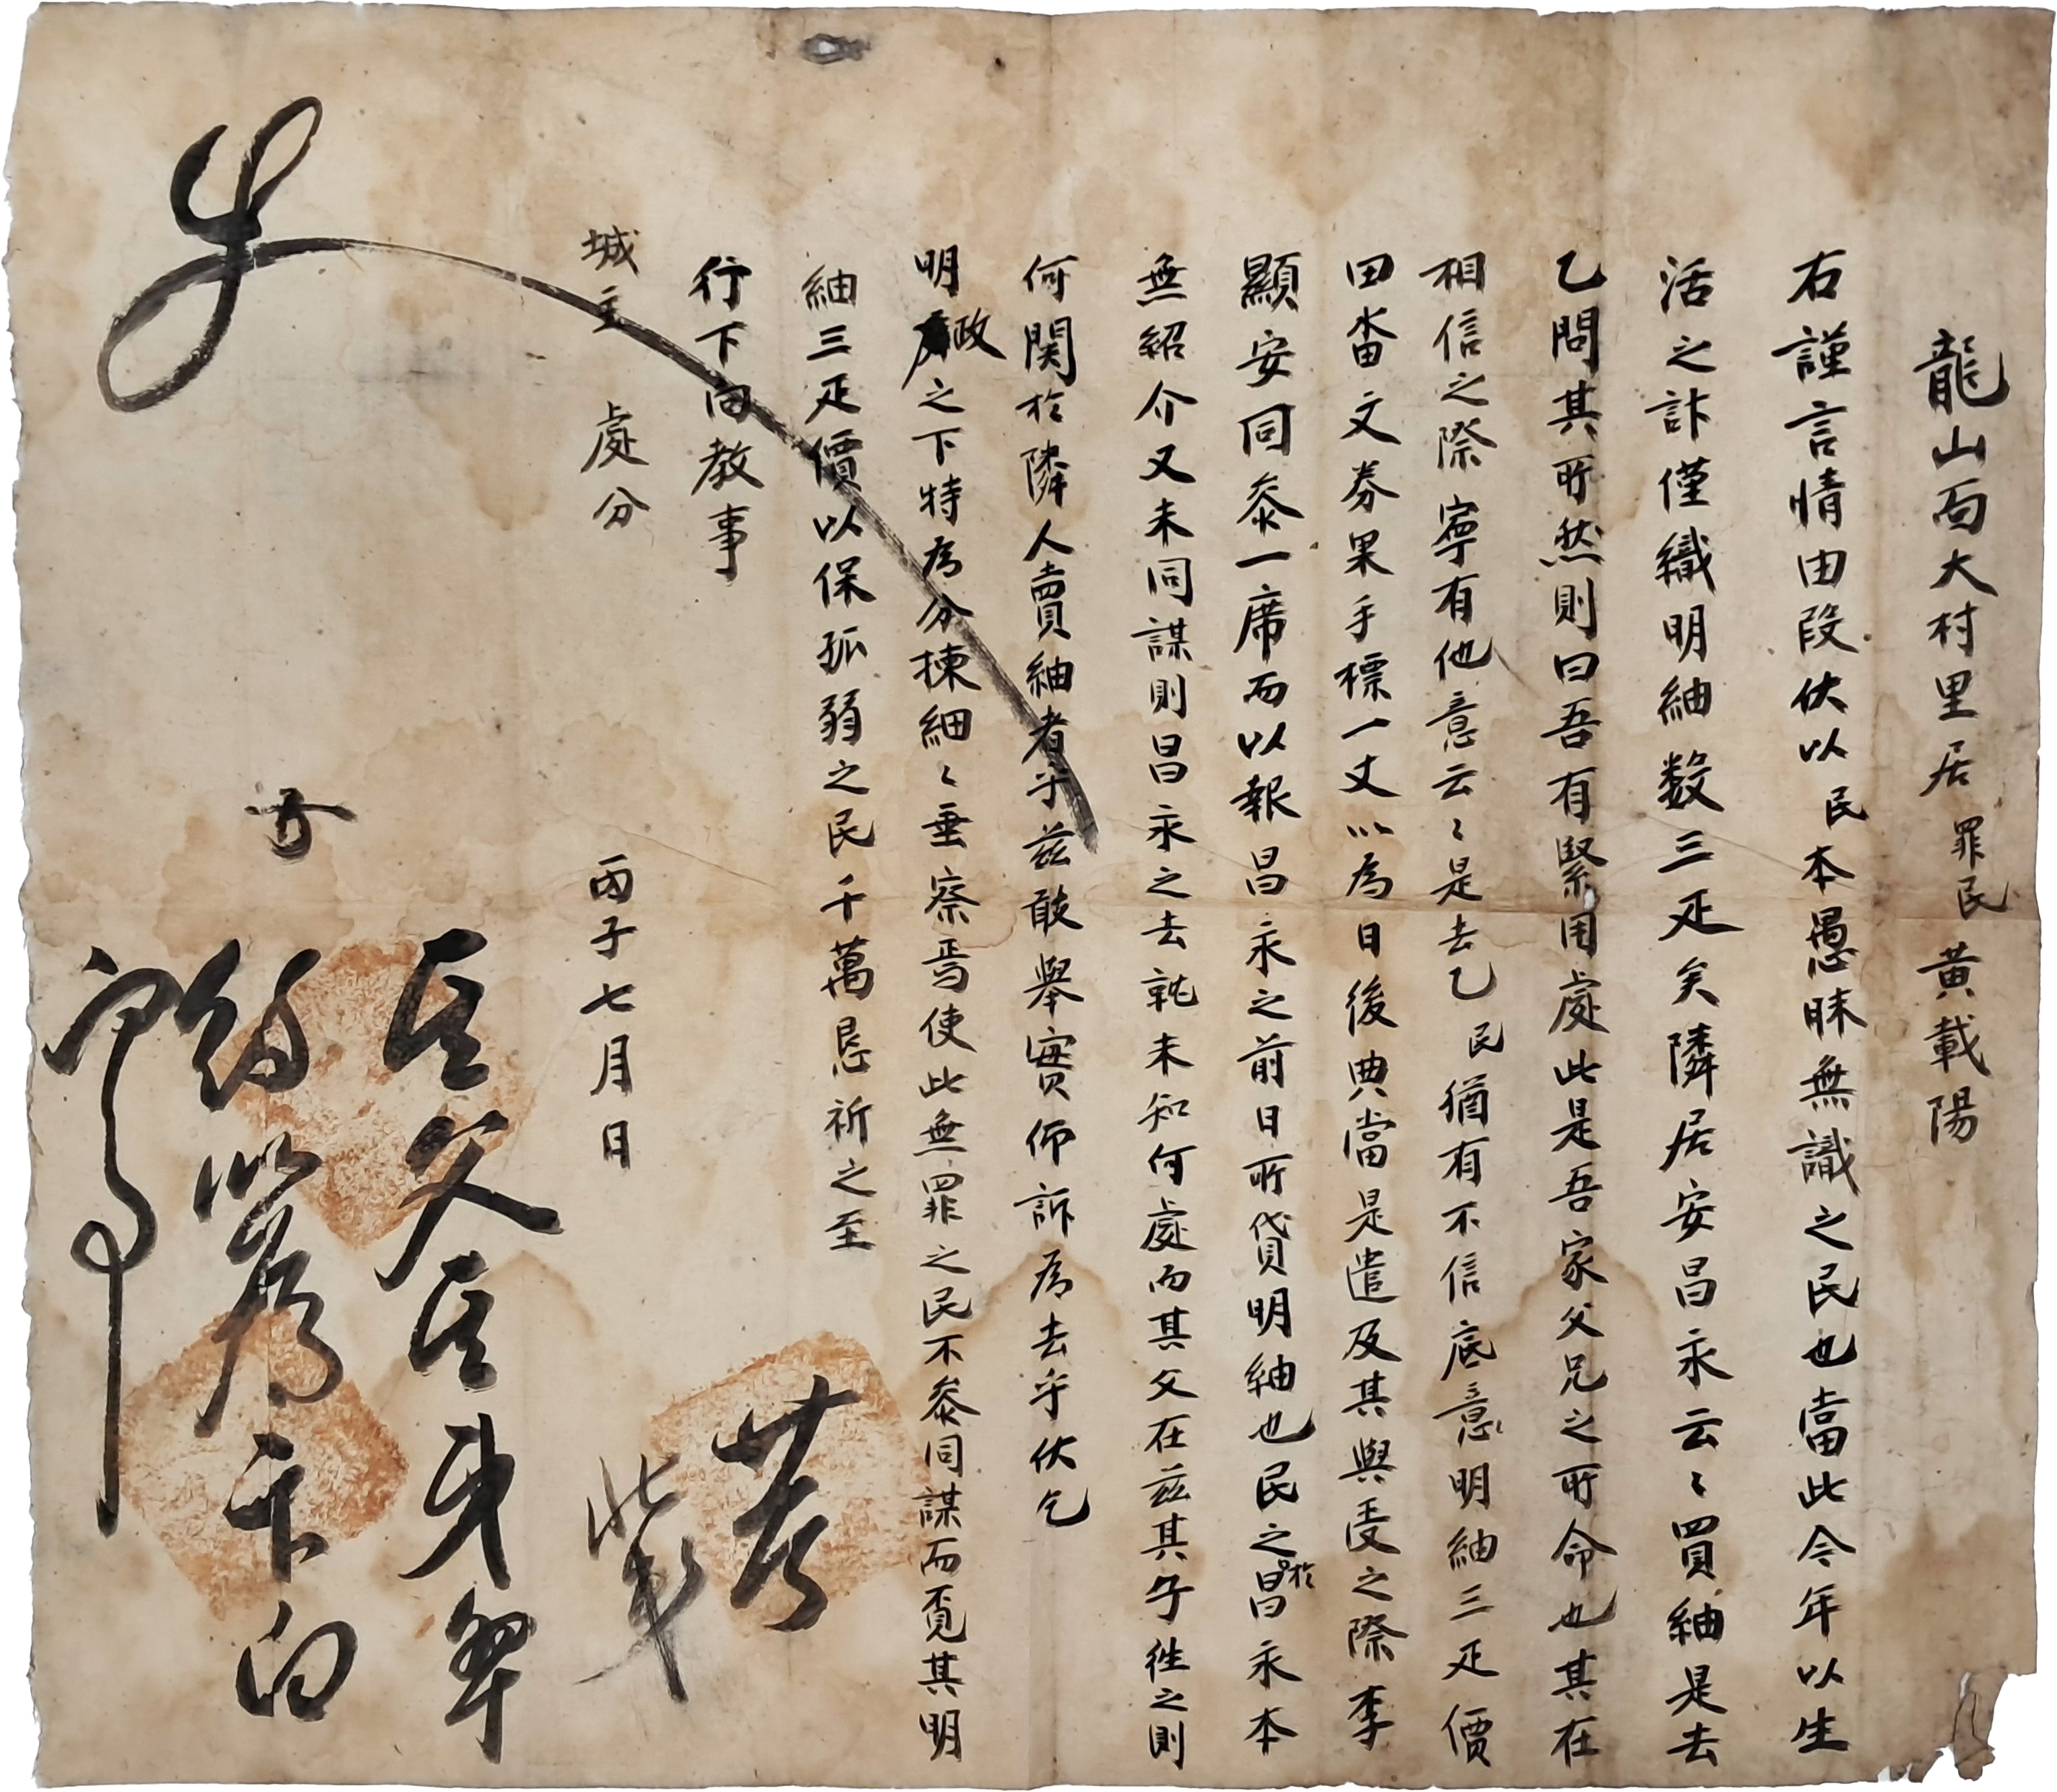 龍山面大村里居罪民黃載陽
右謹言情由段伏以民本愚昧無識之民也當此令年以生
活之計僅織明紬數三疋矣隣居安昌永云〻買紬是去
乙問其所然則曰吾有緊用處此是吾家父兄之所命也其在
相信之際寧有他意云〻是去乙民猶有不信底意明紬三疋價
田畓文券果手標一丈以為日後典當是遣及其與受之際李
顯安同叅一席而以報昌永之前日所貸明紬也民之於昌永本
無紹介又未同謀則昌永之去就未知何處而其父在兹其子徃之則
何関於隣人賣紬者乎兹敢擧實仰訴為去乎伏乞
明政之下特為分揀細〻垂察焉使此無罪之民不叅同謀而覔其明
紬三疋價以保孤弱之民千萬恳祈之至
行下向敎事
城主 處分
丙子七月日